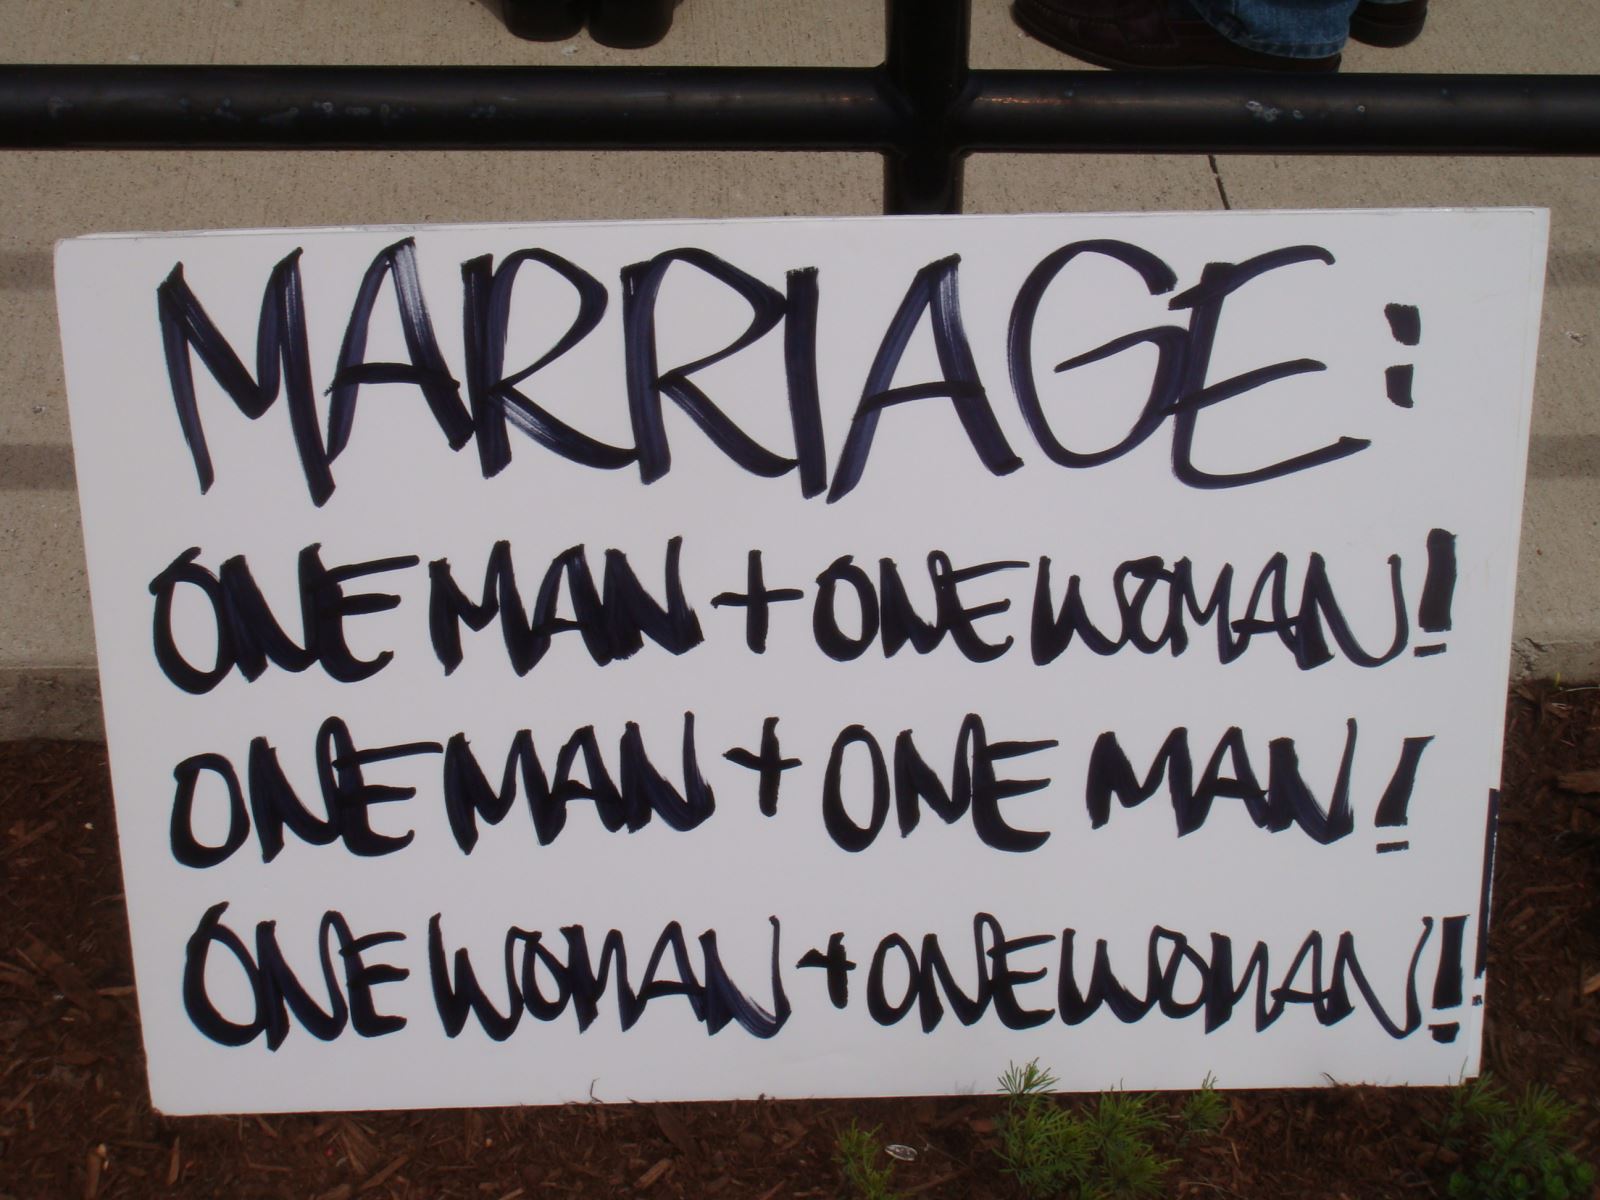 MARRIAGE:
ONE MAN + ONE WOMAN!
ONE MAN + ONE MAN!
ONE WOMAN + ONE WOMAN!